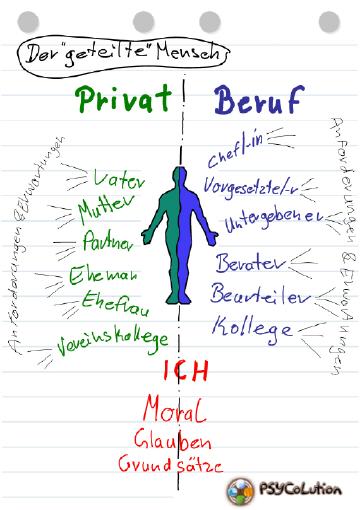 Der "geteilte" Mensch
Privat
Beruf
Anforderungen & Erwartungen
Vater
Mutter
Partner
Eheman
Ehefrau
Vereinskollege
Chef/-in
Vorgesetzte/-r
Untergebener
Berater
Beurteiler
Kollege
Anforderungen & Erwartungen
ICH
Moral
Glauben
Grundsätze
PSYCoLution